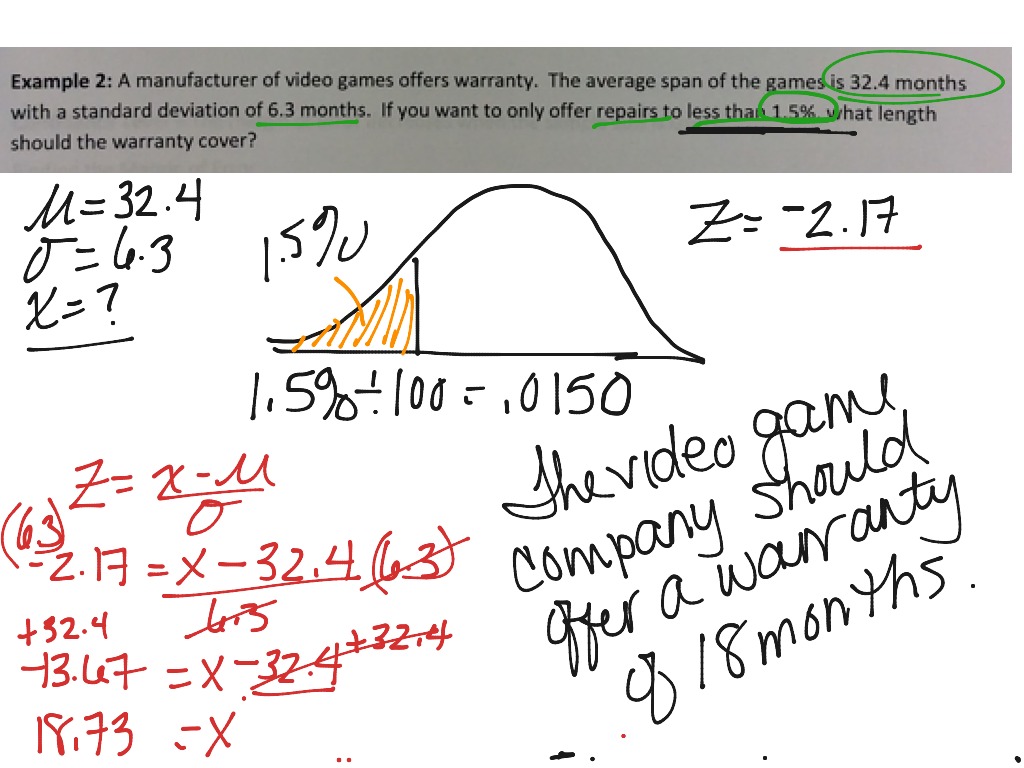 Example 2: A manufacturer of video games offers warranty. The average span of the games is 32.4 months
with a standard deviation of 6.3 months. If you want to only offer repairs to less than 1.5% what length
should the warranty cover?
μ = 32.4
σ = 6.3
x = ?
1.5%
Z = -2.17
1.5% ÷ 100 = .0150
Z = x - μ
σ
(6.3)
-2.17 = x - 32.4 (6.3)
6.3
+32.4
+32.4
-13.67 = x - 32.4
18.73 = x
The video game
company should
offer a warranty
of 18 months.